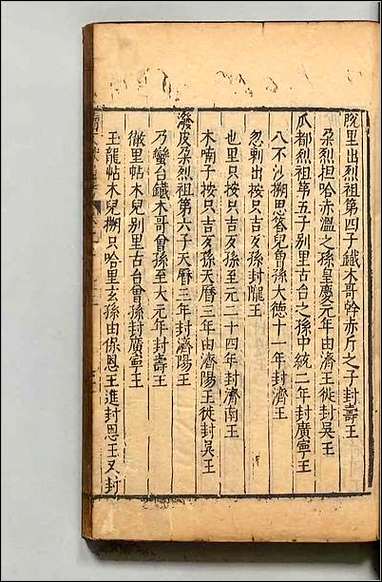 脫里出烈祖第四子鐵木哥斡赤斤之子封壽王
朶烈捏哈赤溫之孫皇慶元年由濟王徙封吳王
爪都烈祖第五子别里古台之孫中統二年封廣寧王
八不沙搠思筭兒曾孫大德十一年封濟王
忽剌出按只吉歹孫封隴王
也里只按只吉歹孫至元二十四年封濟南王
木喃子按只吉歹孫天曆三年由濟陽王徙封吳王
潑皮朶烈祖第六子天曆三年封濟陽王
乃蠻台鐵木哥曾孫至大元年封壽王
徹里帖木兒别里古台曾孫封廣寧王
王龍帖木兒搠只哈里玄孫由保恩王進封恩王又封